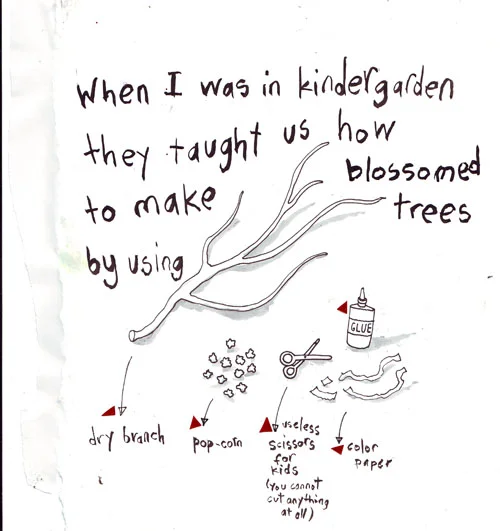 When I was in kindergarden
they taught us how
to make blossomed
by using trees
GLUE
dry branch
pop-corn
useless
scissors
for
kids
(you cannot
cut anything
at all)
color
paper